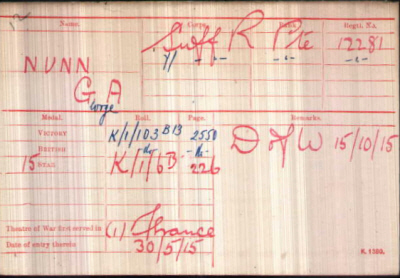 Name. Corps. Rank. Regtl. No.
NUNN Suff R Pte 12281
G A " - " - - " - - " -
George
Medal. Roll. Page. Remarks.
VICTORY K/1/103 B13 2550 D of W 15/10/15
BRITISH -do- -do-
15 STAR K/1/6B 226
Theatre of War first served in (1) France
Date of entry therein 30/5/15
K. 1380.